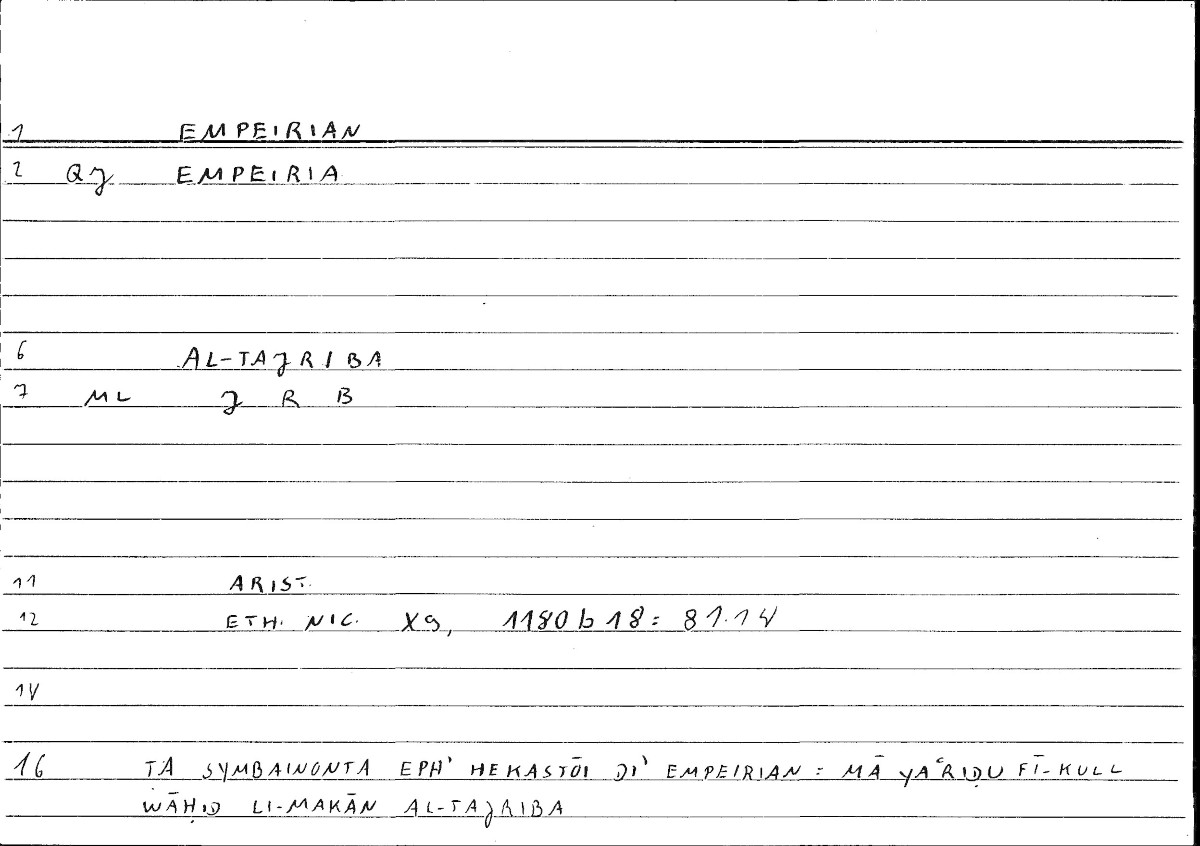 1 EMPEIRIAN
2 QJ EMPEIRIA
6 AL-TAJRIBA
7 ML J R B
11 ARIST.
12 ETH. NIC. X9, 1180b18 = 81.14
14
16 TA SYMBAINONTA EPH' HEKASTŌI DI' EMPEIRIAN = MĀ YAʿRIḌU FĪ-KULL
WĀḤID LI-MAKĀN AL-TAJRIBA